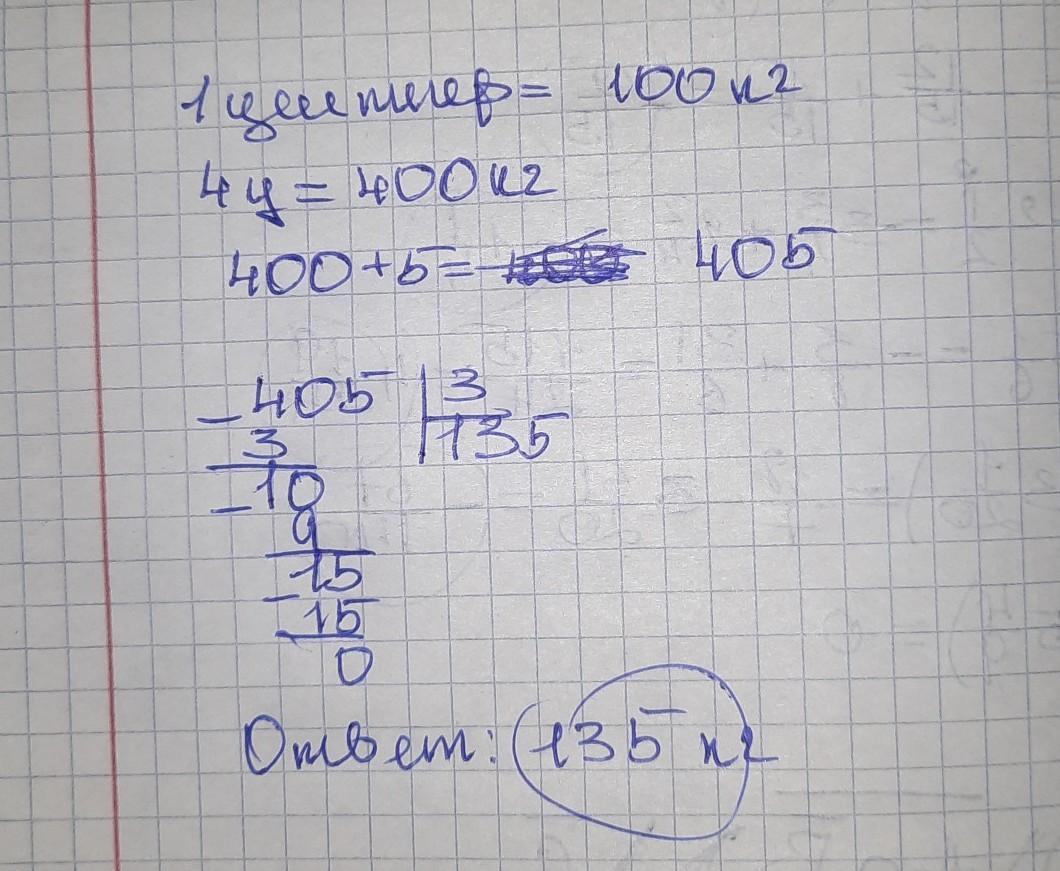 1 центнер = 100 кг
4 ц = 400 кг
400 + 5 = 405
- 405 | 3
3 | 135
- 10
9
- 15
15
0
Ответ: 135 кг